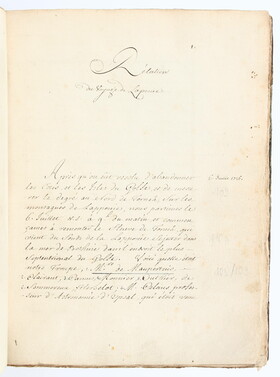 Relation
du Voyage de Lapponie
Après qu'on eut résolu d'abandonner
les Côtes et les Isles du Golfe, et de mesu-
rer le degré au Nord de Torneå, sur les
montagnes de Lapponie, nous partimes le
6 Juillet à 9 du matin et commen-
çames à remonter le fleuve de Torneå qui
vient du fonds de la Lapponie se jetter dans
la mer de Bothnie dans l'endroit le plus
Septentrional du Golfe. Voici quelle étoit
notre troupe; Mrs de Maupertuis,
Clairaut, Camus, Monnier, Outhier, de
Sommereux, Herbelot; Mr Celsius profes-
seur d'Astronomie d'Upsal, qui étoit venu
6 Juillet